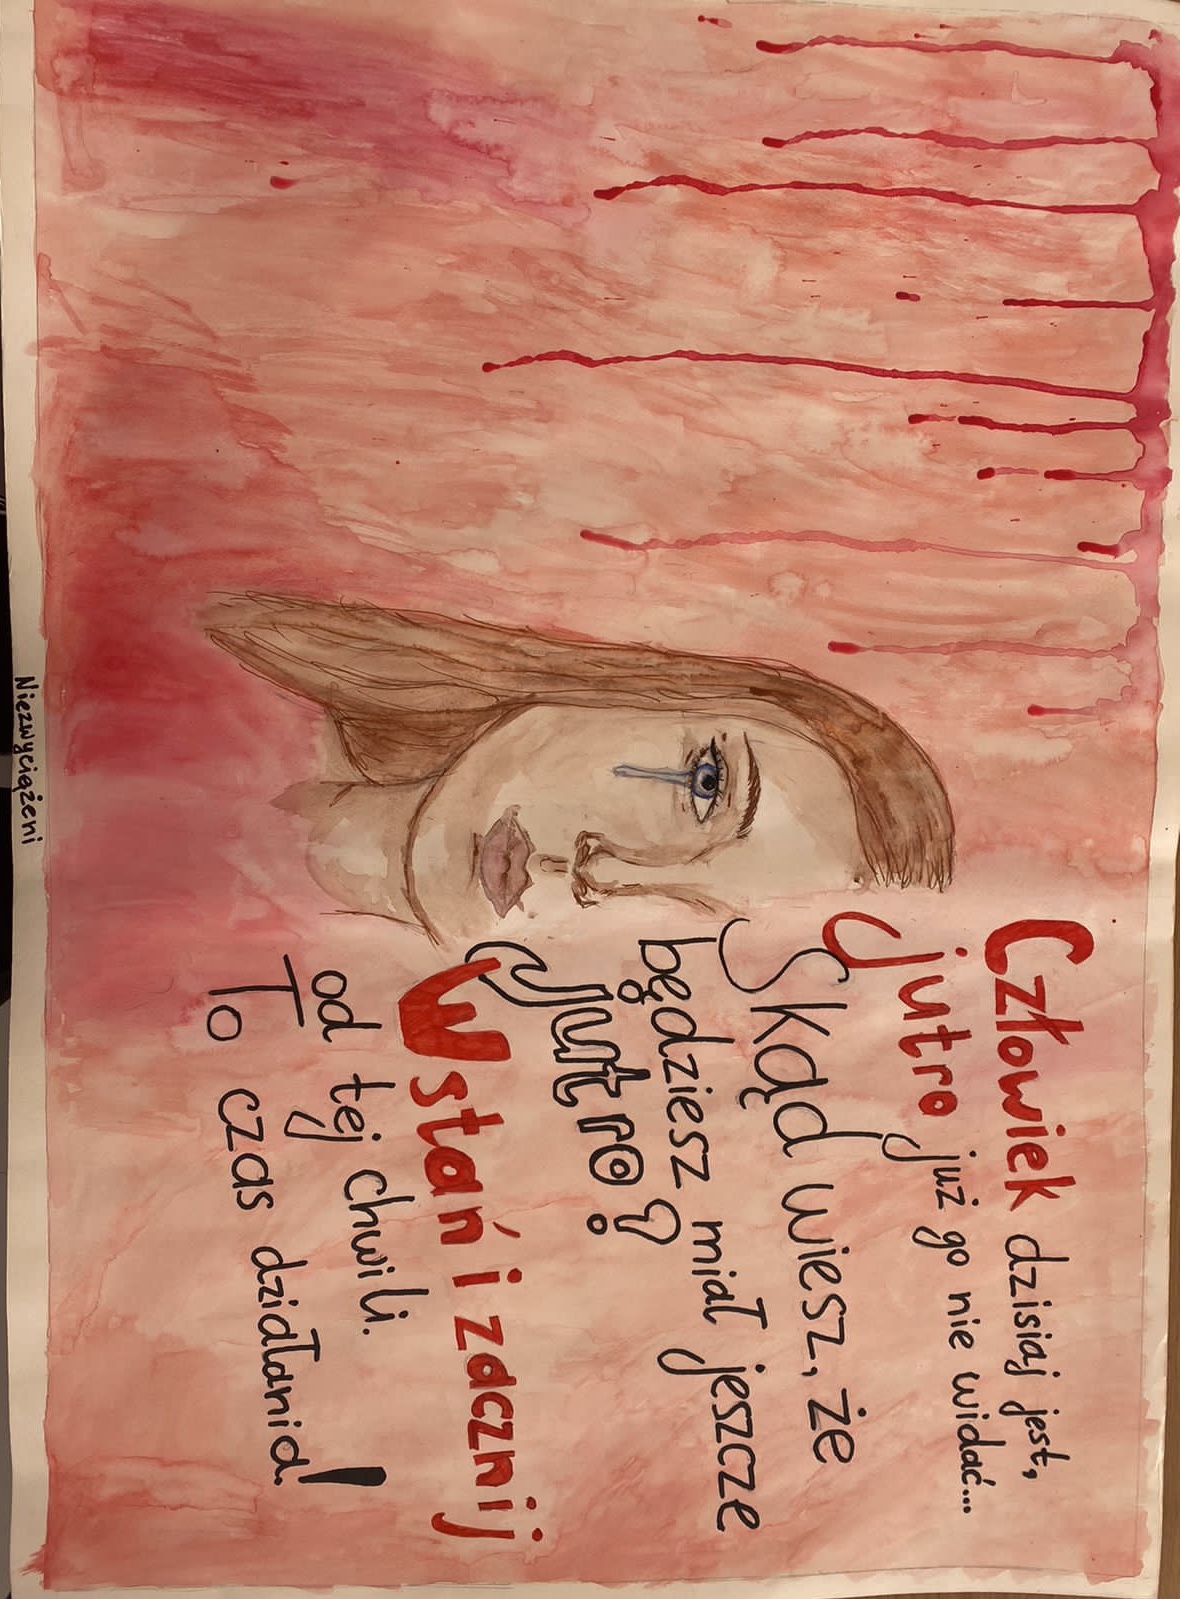 Człowiek dzisiaj jest,
jutro już go nie widać...
Skąd wiesz, że
będziesz miał jeszcze
jutro?
Wstań i zacznij
od tej chwili.
To czas działania!
Niezwyciężeni